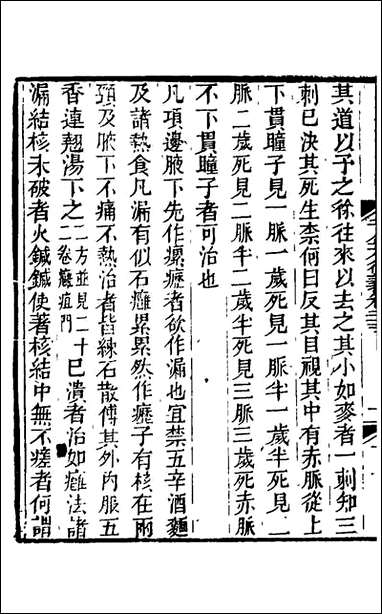 其道以予之徐往來以去之其小如麥者一刺知三
刺已決其死生柰何曰反其目視其中有赤脈從上
下貫瞳子見一脈一歲死見一脈半一歲半死見二
脈二歲死見二脈半二歲半死見三脈三歲死赤脈
不下貫瞳子者可治也
凡項邊腋下先作瘰癧者欲作漏也宜禁五辛酒麵
及諸熱食凡漏有似石癰累累然作癧子有核在兩
頸及腋下不痛不熱治者皆練石散傅其外內服五
香連翹湯下之二方並見二十二卷癰疽門已潰者治如癰法諸
漏結核未破者火鍼鍼使著核結中無不瘥者何謂